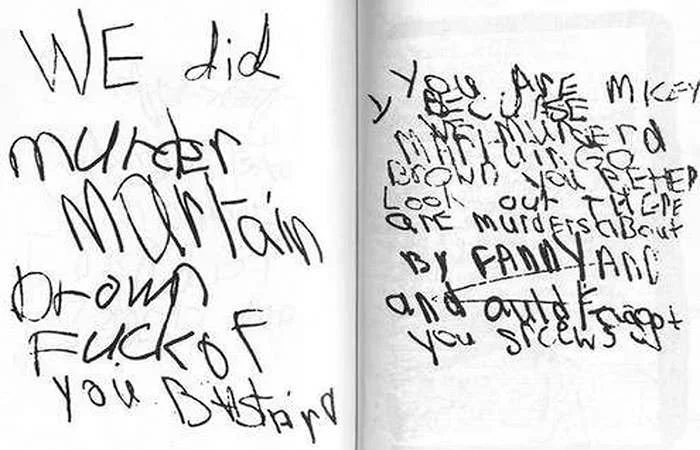 WE did
murder
martain
brown
Fuckof
you BAStArd
You ArE mICEY
y BECUSE
WE murderd
MARTAIN GO
Brown you BETER
Look out THERE
are murders about
By FANNY AND
and auld Faggot
you srcews